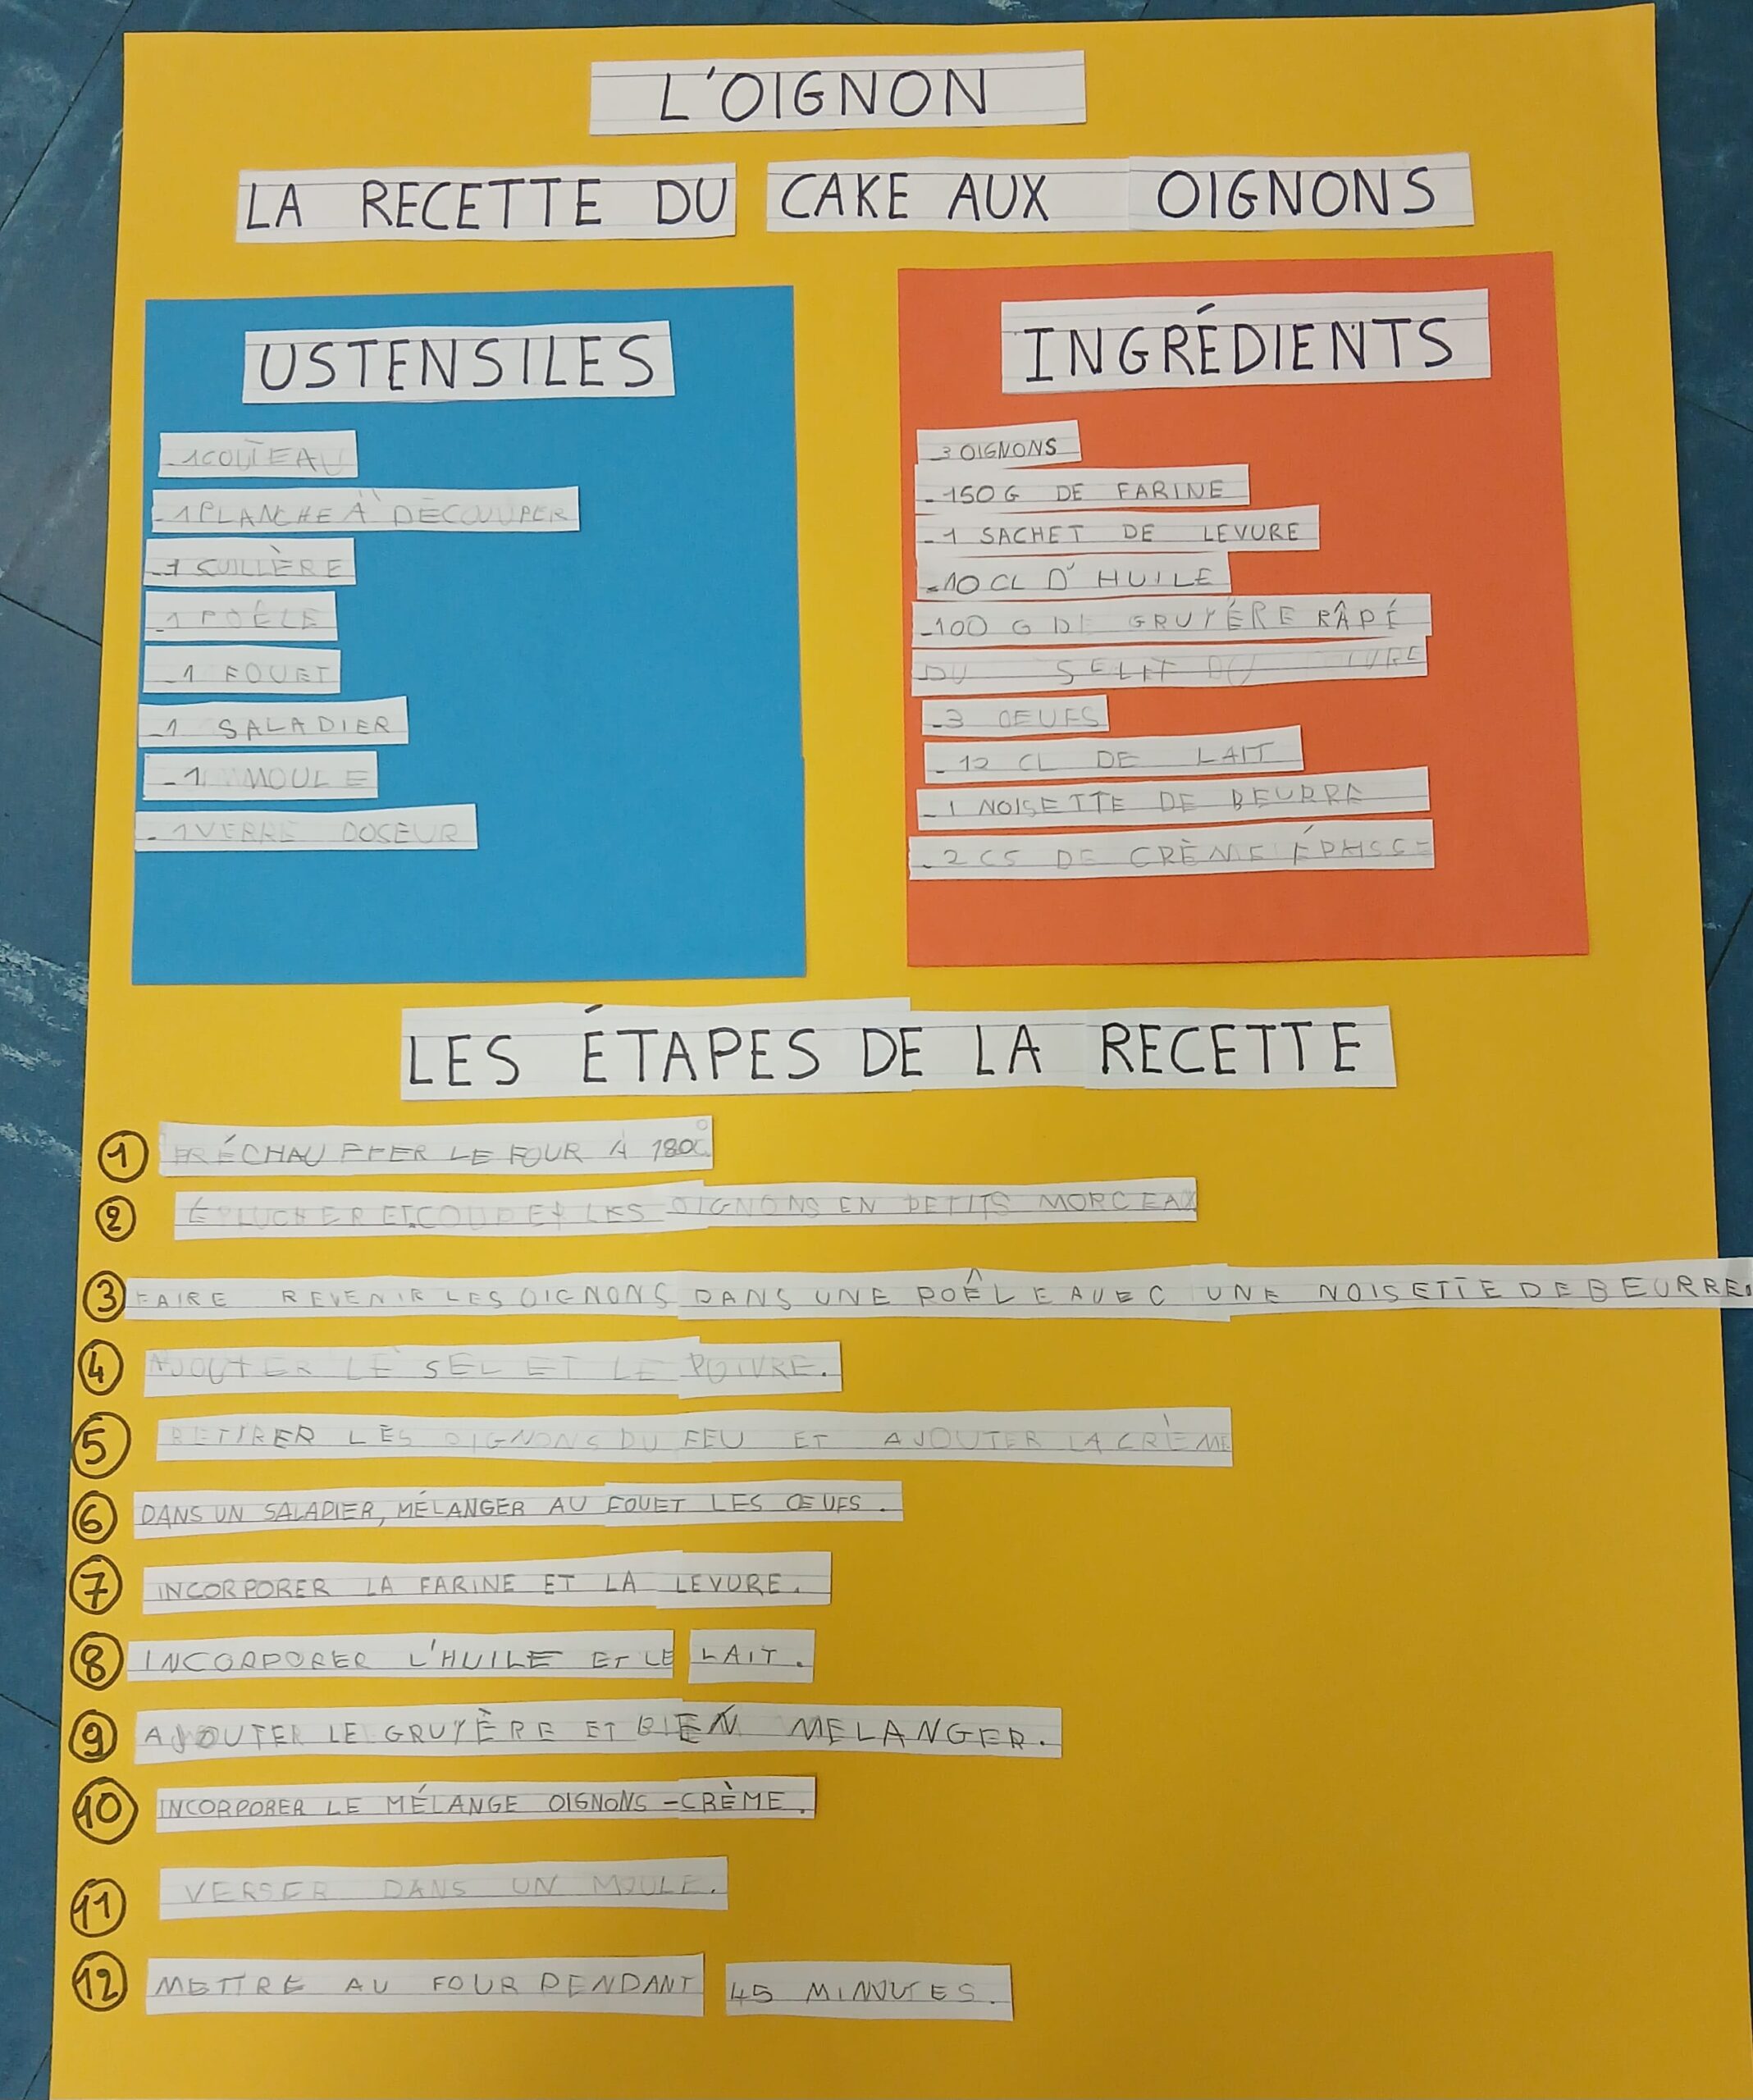 L'OIGNON
LA RECETTE DU CAKE AUX OIGNONS
USTENSILES
-1 COUTEAU
-1 PLANCHE À DÉCOUPER
-1 CUILLÈRE
-1 POÊLE
-1 FOUET
-1 SALADIER
-1 MOULE
-1 VERRE DOSEUR
INGRÉDIENTS
-3 OIGNONS
-150 G DE FARINE
-1 SACHET DE LEVURE
-10 CL D'HUILE
-100 G DE GRUYÈRE RÂPÉ
DU SEL
-3 OEUFS
-12 CL DE LAIT
-1 NOISETTE DE BEURRE
-2 CS DE CRÈME ÉPAISSE
LES ÉTAPES DE LA RECETTE
1 PRÉCHAUFFER LE FOUR À 180°C
2 ÉPLUCHER ET COUPER LES OIGNONS EN PETITS MORCEAX
3 FAIRE REVENIR LES OIGNONS DANS UNE POÊLE AVEC UNE NOISETTE DE BEURRE.
4 AJOUTER LE SEL ET LE POIVRE.
5 RETIRER LES OIGNONS DU FEU ET AJOUTER LA CRÈME
6 DANS UN SALADIER, MÉLANGER AU FOUET LES ŒUFS.
7 INCORPORER LA FARINE ET LA LEVURE.
8 INCORPORER L'HUILE ET LE LAIT.
9 AJOUTER LE GRUYÈRE ET BIEN MELANGER.
10 INCORPORER LE MÉLANGE OIGNONS-CRÈME.
11 VERSER DANS UN MOULE.
12 METTRE AU FOUR PENDANT 45 MINUTES.